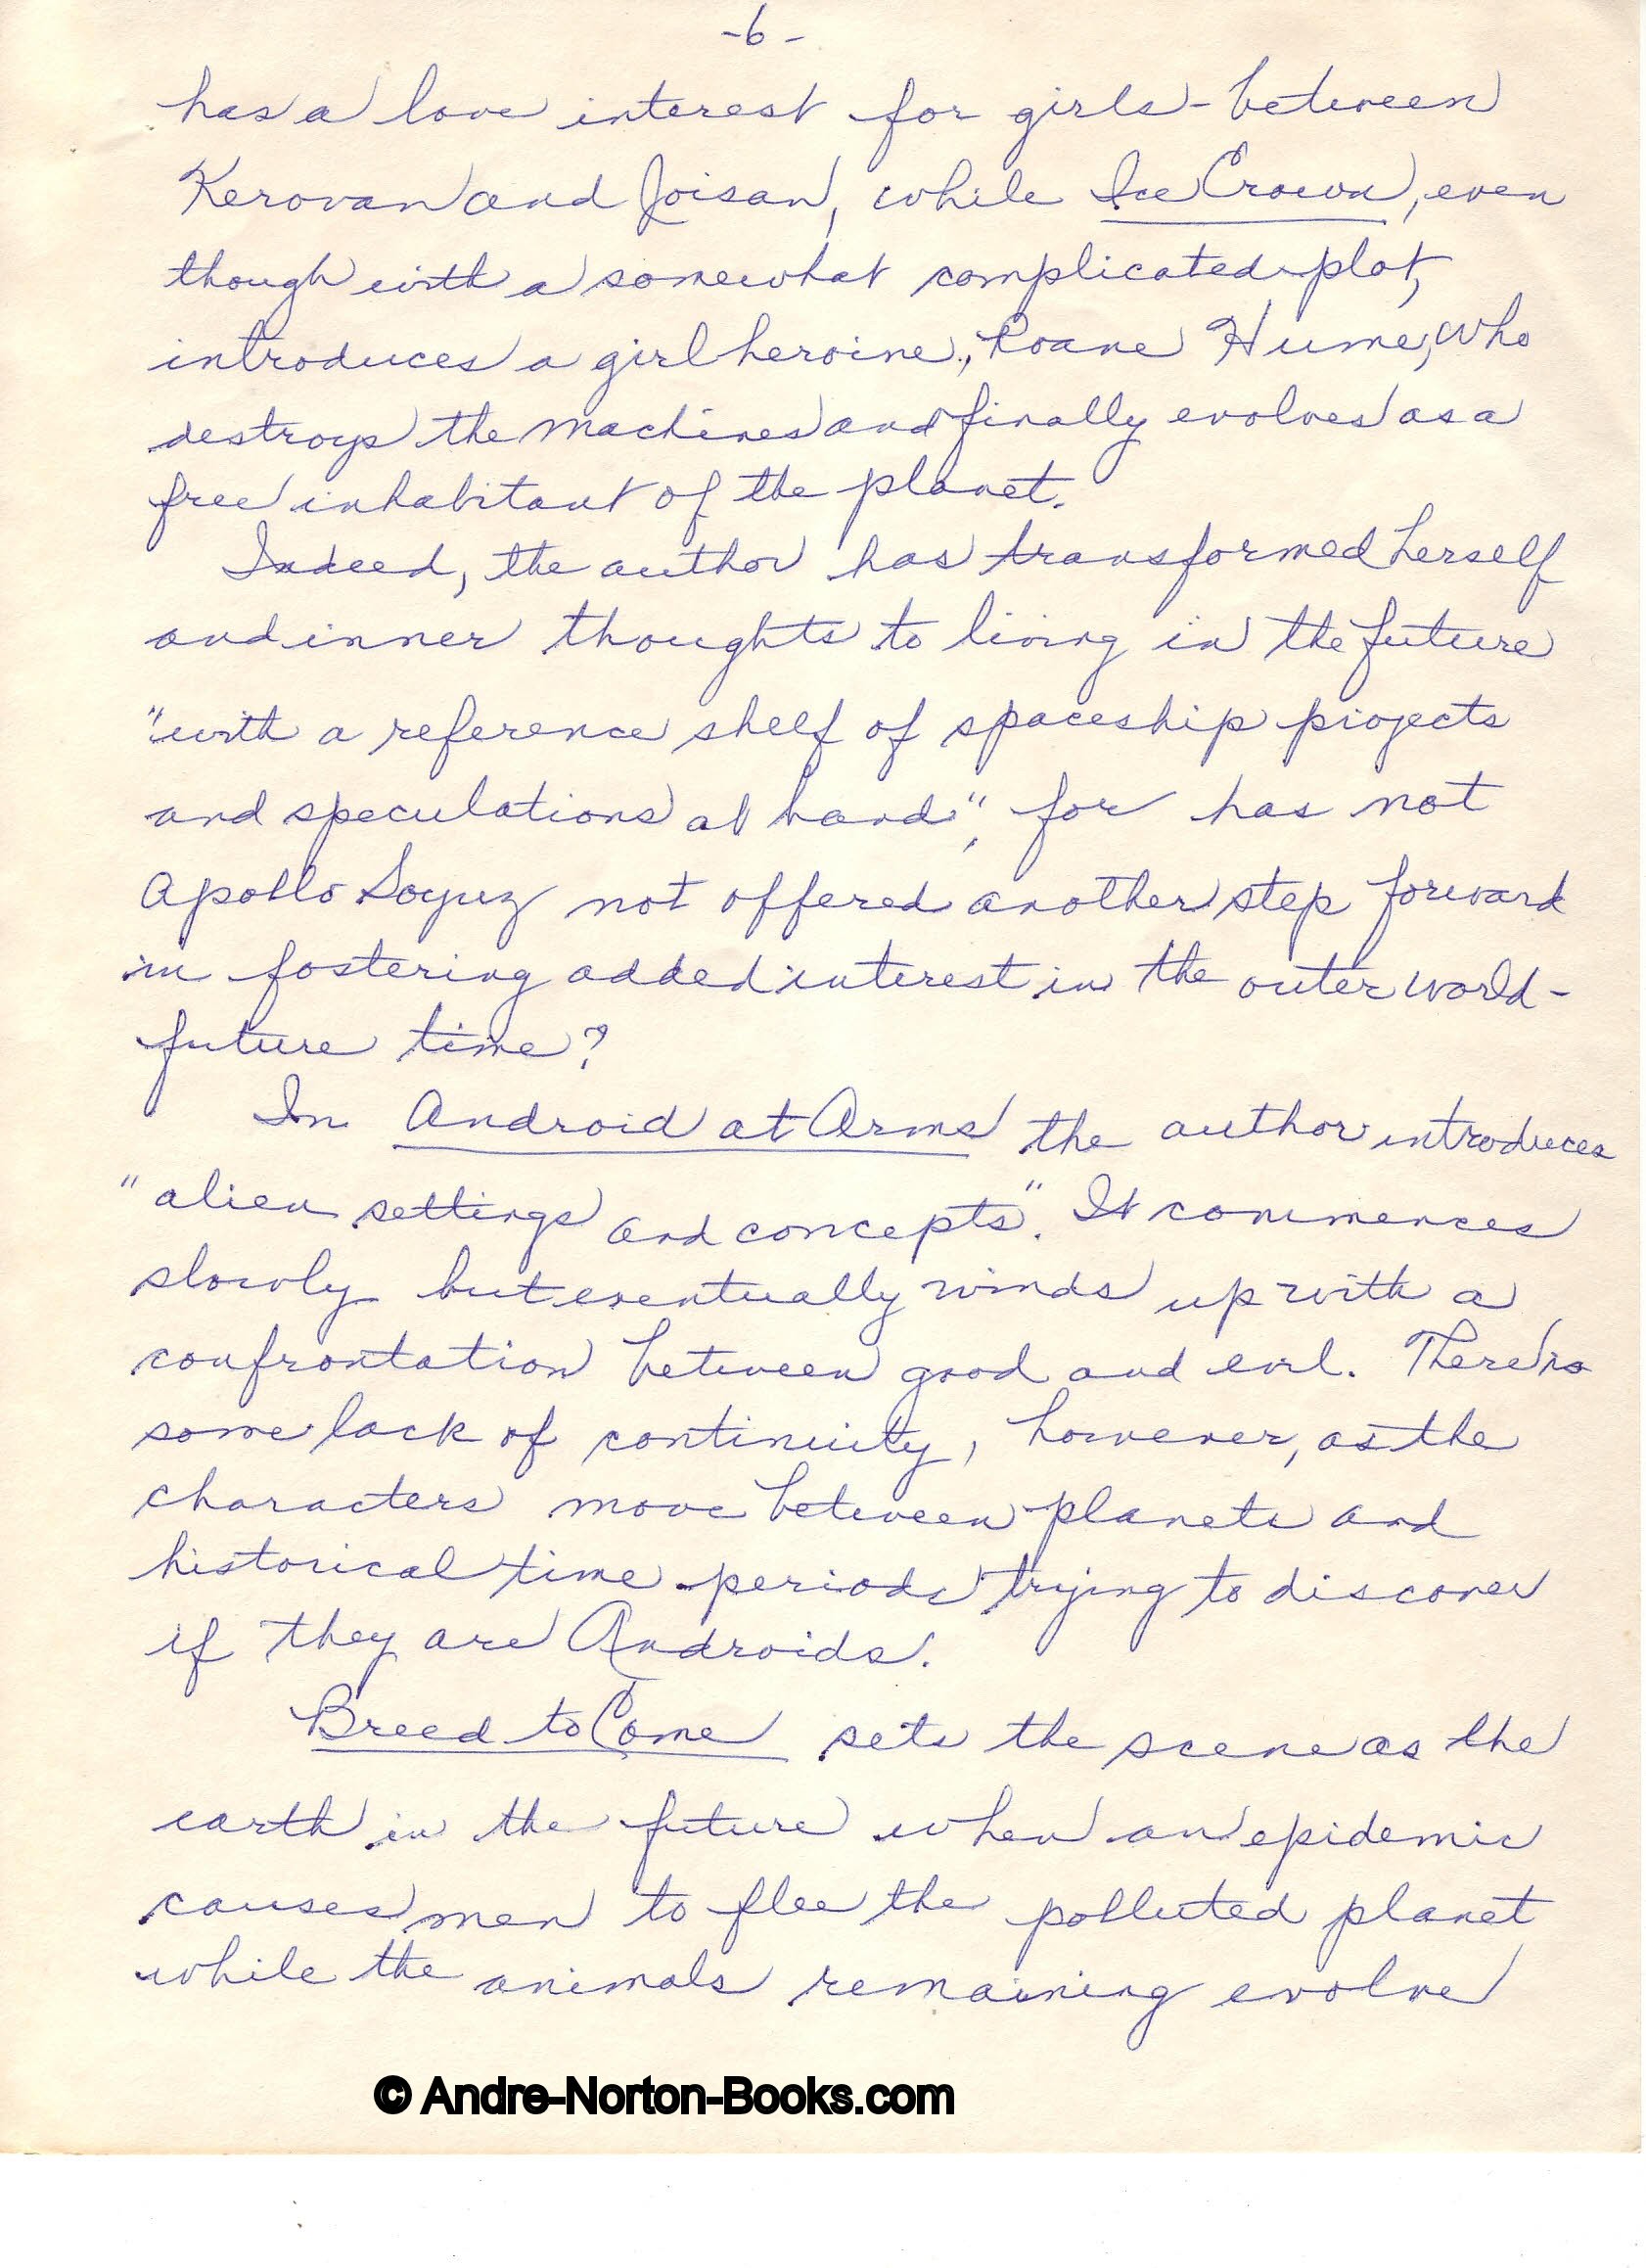 -6-
has a love interest for girls - between
Kerovan and Joisan, while Ice Crown, even
though with a somewhat complicated plot,
introduces a girl heroine, Roane Hume, who
destroys the machines and finally evolves as a
free inhabitant of the planet.
Indeed, the author has transformed herself
and inner thoughts to living in the future
"with a reference shelf of spaceship projects
and speculations at hand", for has not
Apollo Soyuz not offered another step forward
in fostering added interest in the outer world-
future time?
In Android at Arms the author introduces
"alien settings and concepts". It commences
slowly but eventually winds up with a
confrontation between good and evil. There is
some lack of continuity, however, as the
characters move between planets and
historical time periods trying to discover
if they are Androids.
Breed to Come sets the scene as the
earth in the future when an epidemic
causes men to flee the polluted planet
while the animals remaining evolve
© Andre-Norton-Books.com